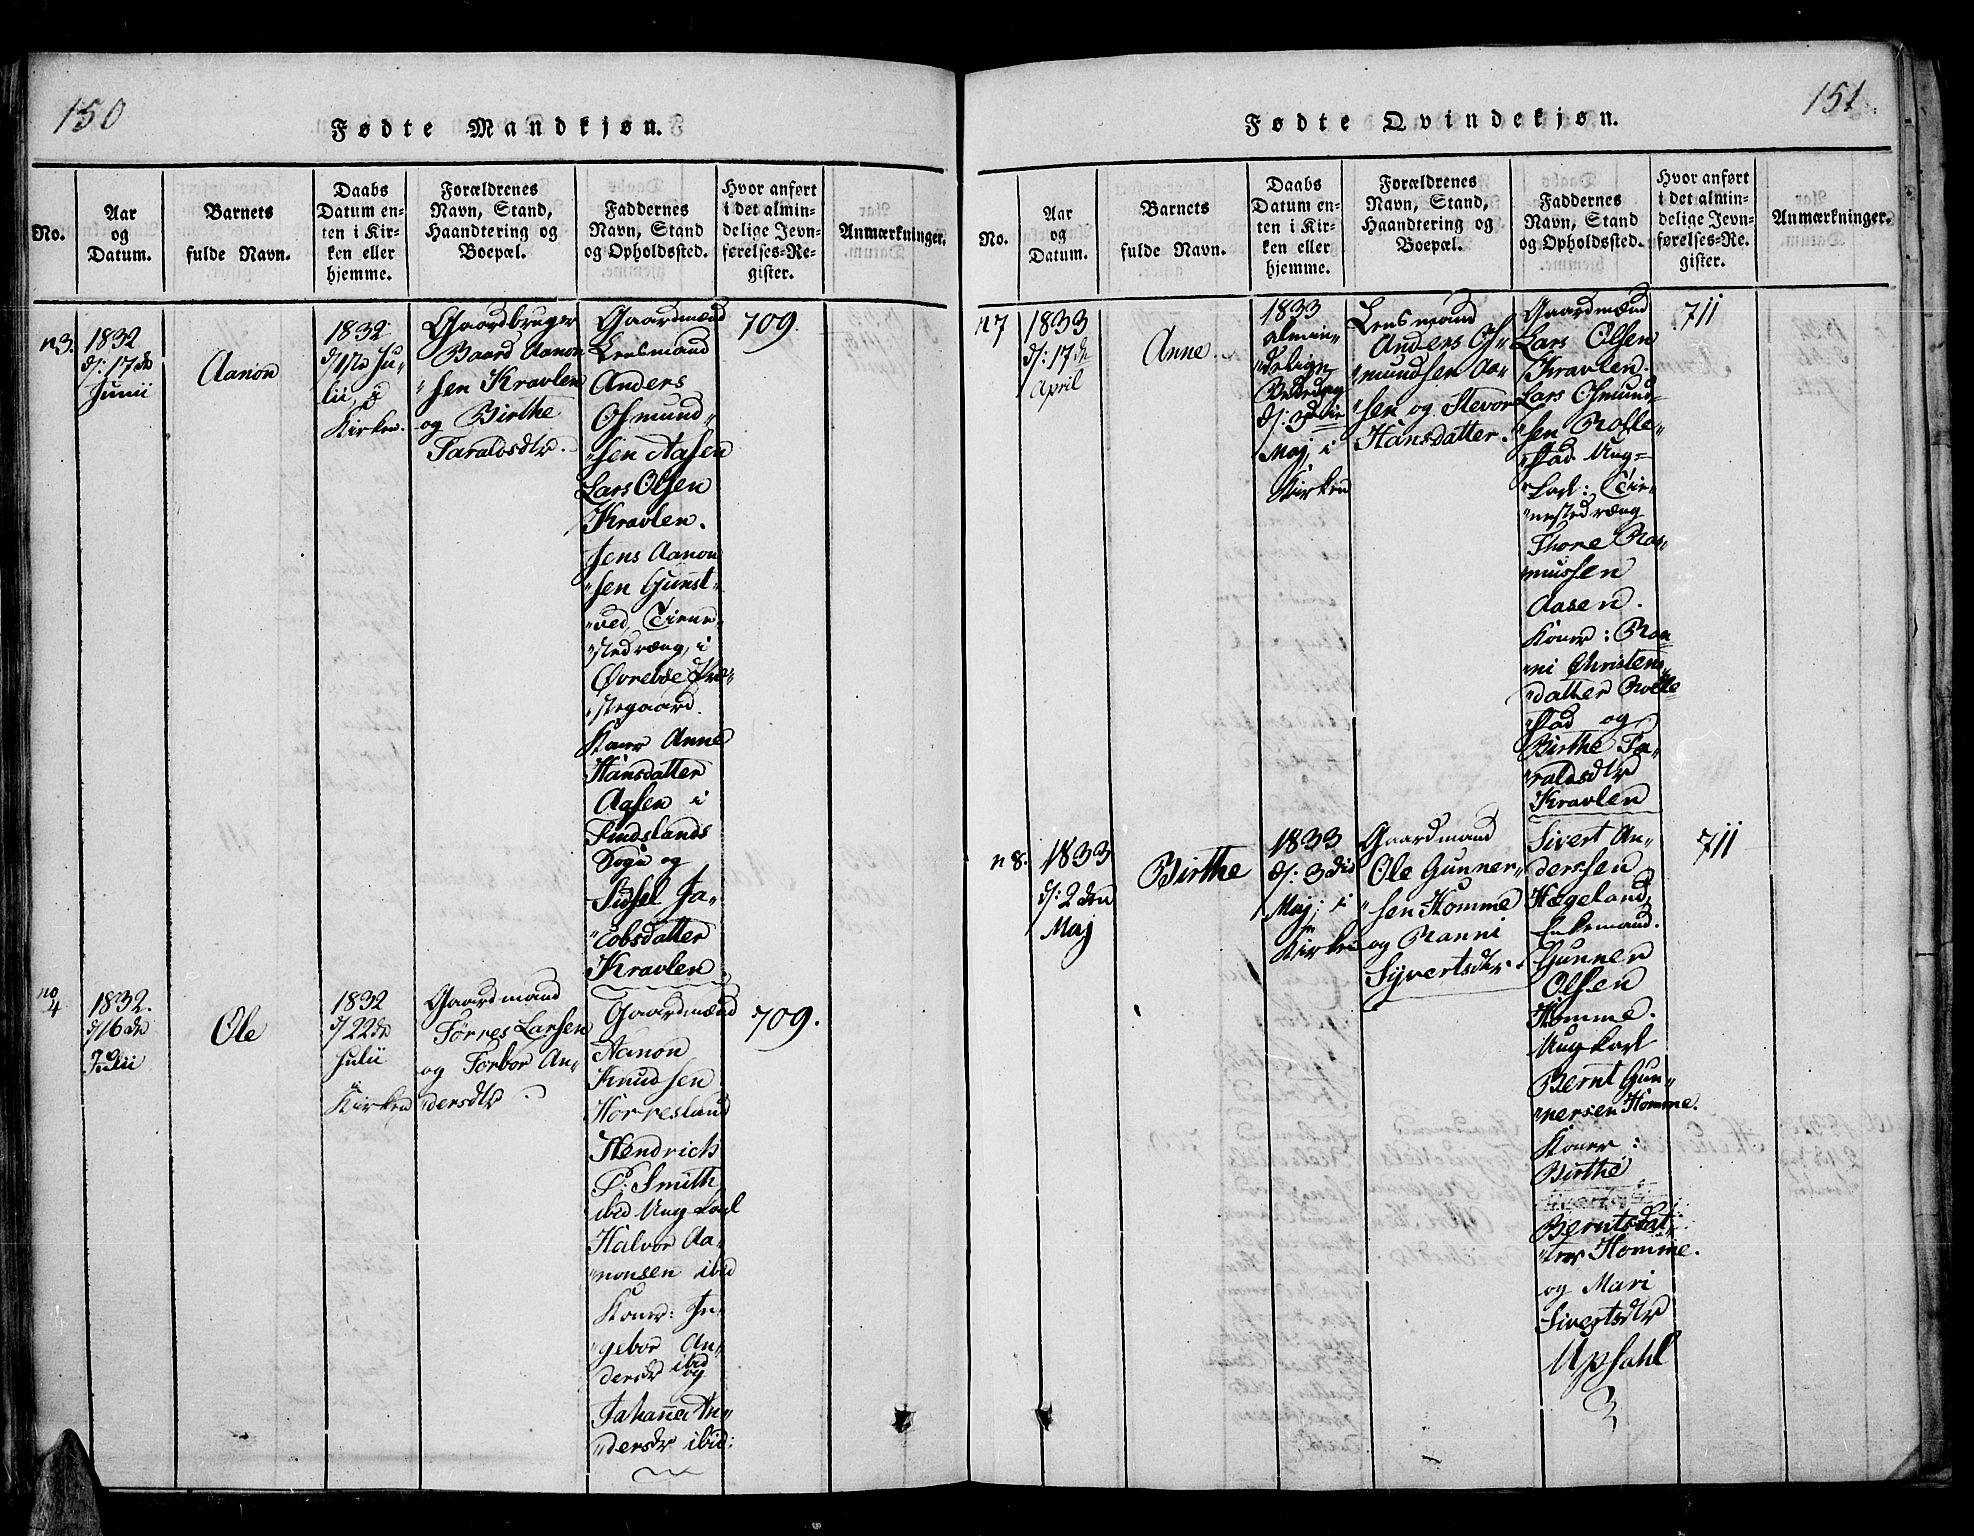 150
Fødte Mandkjøn.
No.
Aar
og
Datum.
Barnets
fulde Navn.
Daabs
Datum en-
ten i Kir-
ken eller
hjemme.
Forældrenes
Navn, Stand,
Haandtering og
Boepæl.
Faddernes
Navn, Stand
og Opholdssted.
Hvor anført
i det almin-
delige Jevn-
førelses-Re-
gister.
Anmærkninger.
n 3.
1832
d: 17de
Junii
Aanon
1832
d/1ste Ju-
lii, i
Kirken.
Gaardbruger
Baard Aanon
"sen Kravlen
og Birthe
Taraldsdtr.
Gaardmænd
Lensmand
Anders
Osmund-
"sen Aasen
Lars Olsen
Kravlen.
Jens Aanon
"sen Gunst-
"ved, Tiene-
"stedræng, i
Øvrebøe Præ-
"stegaard.
Koner Anne
Hansdatter
Aasen i
Findslands
Sogn og
Sidsel Ja-
"cobsdatter
Kravlen.
709.
no
4
1832.
d/16de
Julii
Ole
1832
d/22de
Julii
i
Kirken
Gaardmand
Tørres Larsen
og Torbor An-
dersdtr.
Gaardmænd
Aanon
Knudsen
Horresland
Hendrich
P: Smith
ibid Ungkarl
Halvor Aa-
"nonsen ibid
Koner: In-
"gebor An-
dersdr ibid
og
Johanne An-
"dersdr ibid:
709.
151
Fødte Qvindekjøn.
No.
Aar
og
Datum.
Barnets
fulde Navn.
Daabs
Datum en-
ten i Kir-
ken eller
hjemme.
Forældrenes
Navn, Stand,
Haandtering og
Boepæl.
Faddernes
Navn, Stand
og Opholdssted.
Hvor anført
i det almin-
delige Jevn-
førelses-Re-
gister.
Anmærkninger.
n 7
1833
d: 17de
April
Anne.
1833
almin-
"delige
Bededag
d: 3die
Maj, i
Kirken
Lensmand
Anders Os-
"mundsen Aa-
"sen og Stevor
Hansdatter.
Gaardmænd
Lars Olsen
Kravlen.
Lars Osmund-
"sen Rolle-
"stad. Ung-
"karl: Tie-
"nestedræng
Thore Ras-
"mussen
Aasen.
Koner: Ran-
"ni Christens-
"datter Rolle-
"stad og
Birthe Ta-
"raldsdtr
Kravlen
711
n 8.
1833
d: 2den
Maj
Birthe
1833
d: 3die
Maj; i
Kirken
Gaardmand
Ole Gunner-
"sen Homme
og Ranni
Syvertsdtr.
Sivert An-
derssen
Hægeland,
Enkemand.
Gunner
Olsen
Homme.
Ungkarl
Bernt Gun-
"nersen Homme.
Koner:
Birthe
Berntsdat-
"ter Homme.
og Mari
Sivertsdtr
Upsahl
711